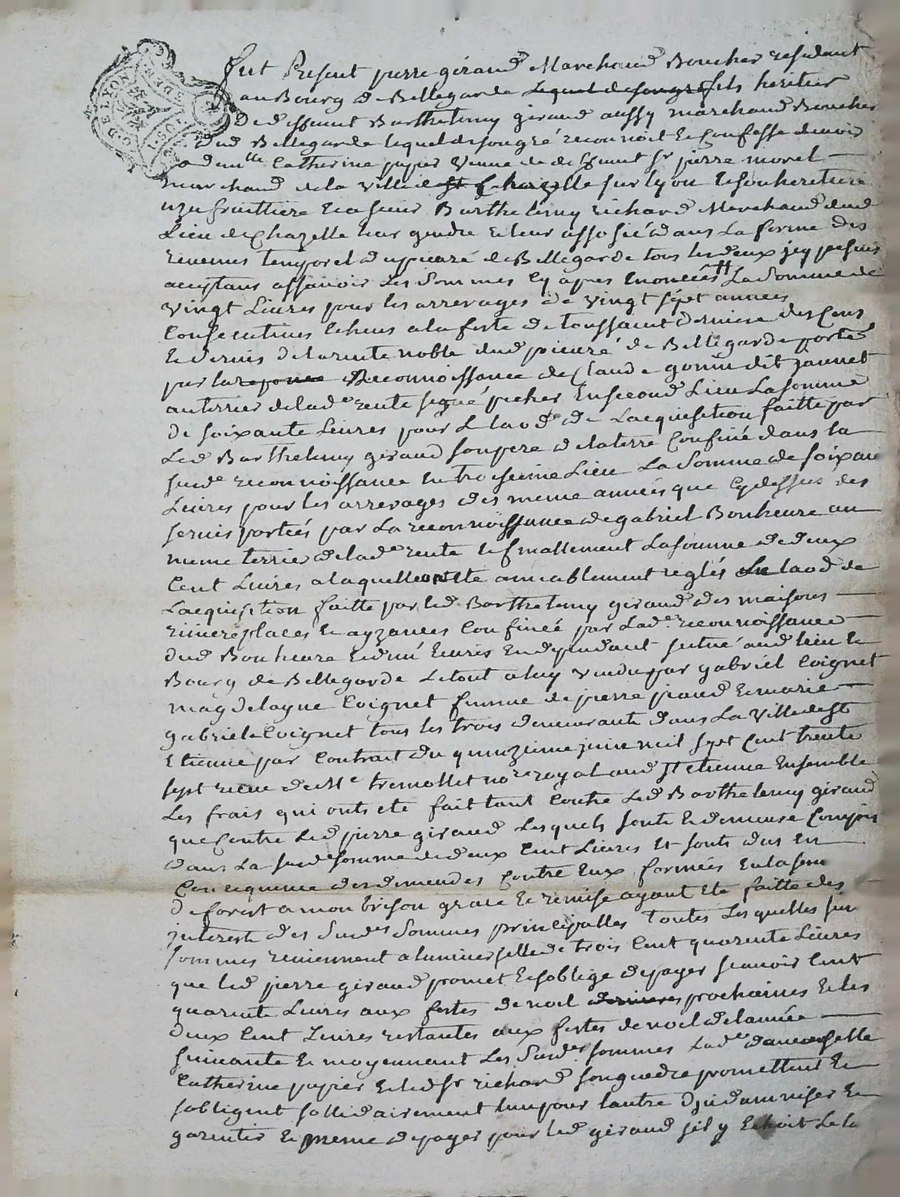 DE LYON
fut Present pierre giraud Marchand Boucher residant
au Bourg de Bellegarde lequel de son gré fils heritier
de deffunt Barthelemy giraud aussy marchand Boucher
dud Bellegarde lequel de son gré reconnoit et Confesse devoir
a dem.lle Catherine papier veuve de deffunt Sr pierre morel
marchand de la ville de Chazelle sur lyon et son heretiere
uzufruittiere et a sieur Barthelemy richard Marchand dud
Lieu de Chazelle son gendre et leur assosié dans la ferme des
revenus temporel du prieuré de Bellegarde tous les deux jcy presents
acceptans assavoir les sommes Cy apres enoncées La Somme de
vingt Livres pour les arrerages de vingt sept années
Consecutives echeus a la feste de toussaint derniere des Cens
et servis de la rente noble dud prieuré de Bellegarde portés
par la reconnoissance de Claude gonin dit jaunet
au terrier de lad.e rente signé pecher En second Lieu La somme
de soixante Livres pour le laod de Lacquisition faitte par
Led Barthelemy giraud son pere de la terre Confinée dans la
susd.e reconnoissance En troisieme Lieu La Somme de soixante
Livres pour les arrerages des meme années que Cy dessus des
servis portées par La reconnoissance de gabriel Bonheure au
meme terrier de lad.e rente et finallement La somme de deux
Cent Livres a laquelle a esté amiablement reglés le laod de
Lacquisition faitte par led Barthelemy giraud des maisons
places et ayzances Confinée par Lad.e reconnoissance
dud Bonheure En dependant scitué aud lieu et
Bourg de Bellegarde Le tout a luy vendu par gabriel Coignet
magdelayne Coignet femme de pierre et marie
gabrielle Coignet tous les trois demeurants dans La ville de St
Etienne par Contrat du quinzieme juin mil sept Cent trente
sept recu de M.e tremollet no.re royal aud St etienne Ensemble
Les frais qui ont eté fait tant Contre Led Barthelemy giraud
que Contre Led pierre giraud Lesquels sont et demeure Compris
dans La susd.e somme de deux Cent Livres et sont dus En
Consequence des demandes Contre Eux formées En la
de forest a monbrison grace et remise ayant eté faitte des
interests des Susd.es Sommes principalles toutes Lesquelles sus
sommes reviennent a l'universelle de trois Cent quarente Livres
que led pierre giraud promet et s'oblige de payer scavoir Cent
quarente Livres aux festes de noel prochaines et les
deux Cent Livres restantes aux festes de noel de l'année
suivante et moyennant Les Susd.es sommes Lad.e demoiselle
Catherine papier et led Sr richard son gendre promettent et
s'obligent sollidairement lun pour lautre d'indamniser et
garentir et meme de payer pour led giraud sil y Echoit Le la